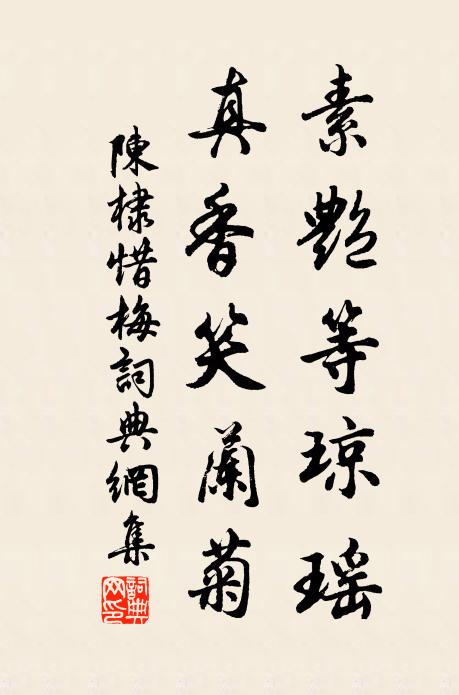 素艷等琼瑶
真香笑蘭菊
陳棣惜梅詞典網集
詞典网印